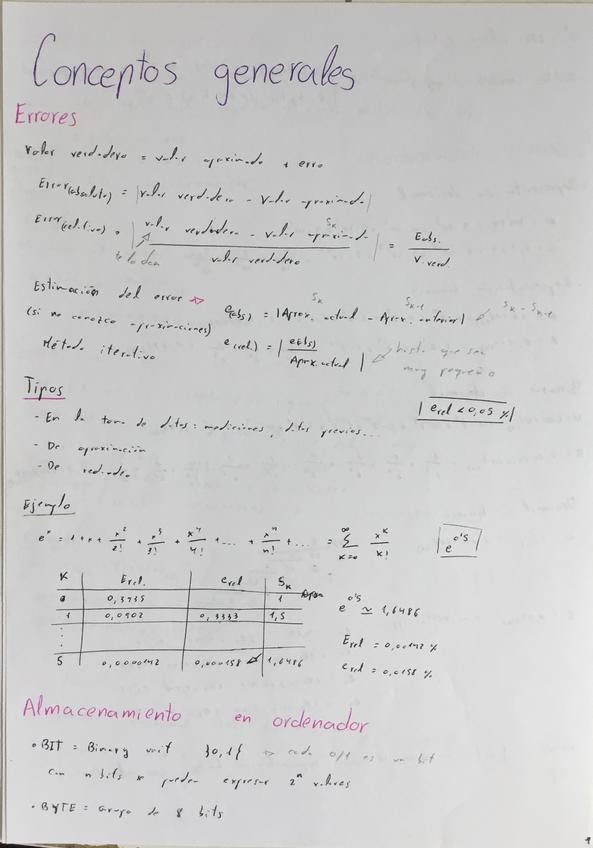 Conceptos generales
Errores
Valor verdadero = valor aproximado + error
Error (absoluto) = |valor verdadero - valor aproximado|
Error (relativo) = | valor verdadero - valor aproximado / valor verdadero | = Eabs. / V. verd.
Sk
te lo dan
Estimación del error → e(abs) = |Aprox. actual - Aprox. anterior| Sk - Sk-1
Sk Sk-1
(si no conozco aproximaciones) e(rel.) = | e(abs) / Aprox. actual | hasta que sea muy pequeño
Método iterativo
Tipos
| erel < 0,05 % |
- En la toma de datos: mediciones, datos previos...
- De aproximación
- De redondeo
Ejemplo
e^x = 1 + x + x²/2! + x³/3! + x⁴/4! + ... + x^n/n! + ... = ∑ k=0 ∞ x^k/k! e^0'5
K Erel. erel Sk
0 0,3935 1
1 0,0902 0,3333 1,5
⋮
5 0,0000142 0,000158 1,6486
e^0'5 ≃ 1,6486
Erel = 0,00142 %
erel = 0,0158 %
Almacenamiento en ordenador
• BIT = Binary unit {0,1} → cada 0/1 es un bit
con n bits se pueden expresar 2^n valores
• BYTE = Grupo de 8 bits